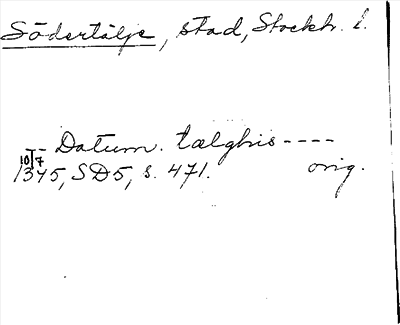 Södertälje, stad, Stockh. l.
-- Datum. tælghis ----
10/7
1345, SD5, s. 471. orig.